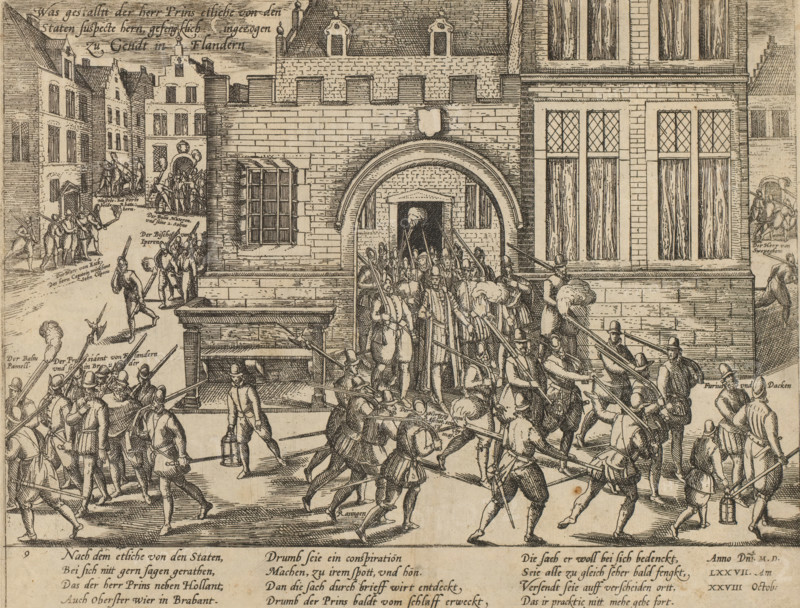 Was gestaltt der herr Prins etliche von den
Staten suspecte hern, gefengklich ingezogen
zu Gendt in Flandern
Der Bischof
Iperen
Der Herr von
Der Bisch
Der President von Flandern
und
Parivae und Dacken
Rasingen
9
Nach dem etliche von den Staten,
Bei sich nitt gern sagen gerathen,
Das der herr Prins neben Hollant,
Auch Oberster wier in Brabant.
Drumb seie ein conspiration
Machen, zu irem spott, und hon.
Dan die sach durch brieff wirt entdeckt,
Drumb der Prins baldt vom schlaff erweckt,
Die sach er woll bei sich bedenckt,
Seie alle zu gleich seher bald fengkt,
Versendt seie auff verscheiden ortt,
Das ir practic nitt mehe gehe fort.
Anno Dnj. M. D.
LXXVII. Am
XXVIII Octob: